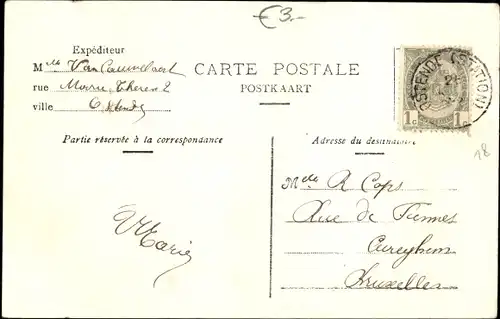 €3.-
Expéditeur
Mlle Van Cauwelaert
rue Marie Therese 2
ville Ostende
CARTE POSTALE
POSTKAART
OSTENDE (STATION)
1c 1c
Partie réservée à la correspondance
Adresse du destinataire
18
Mlle R Cops
Rue de Fiennes
Cureghem
Bruxelles
Marie